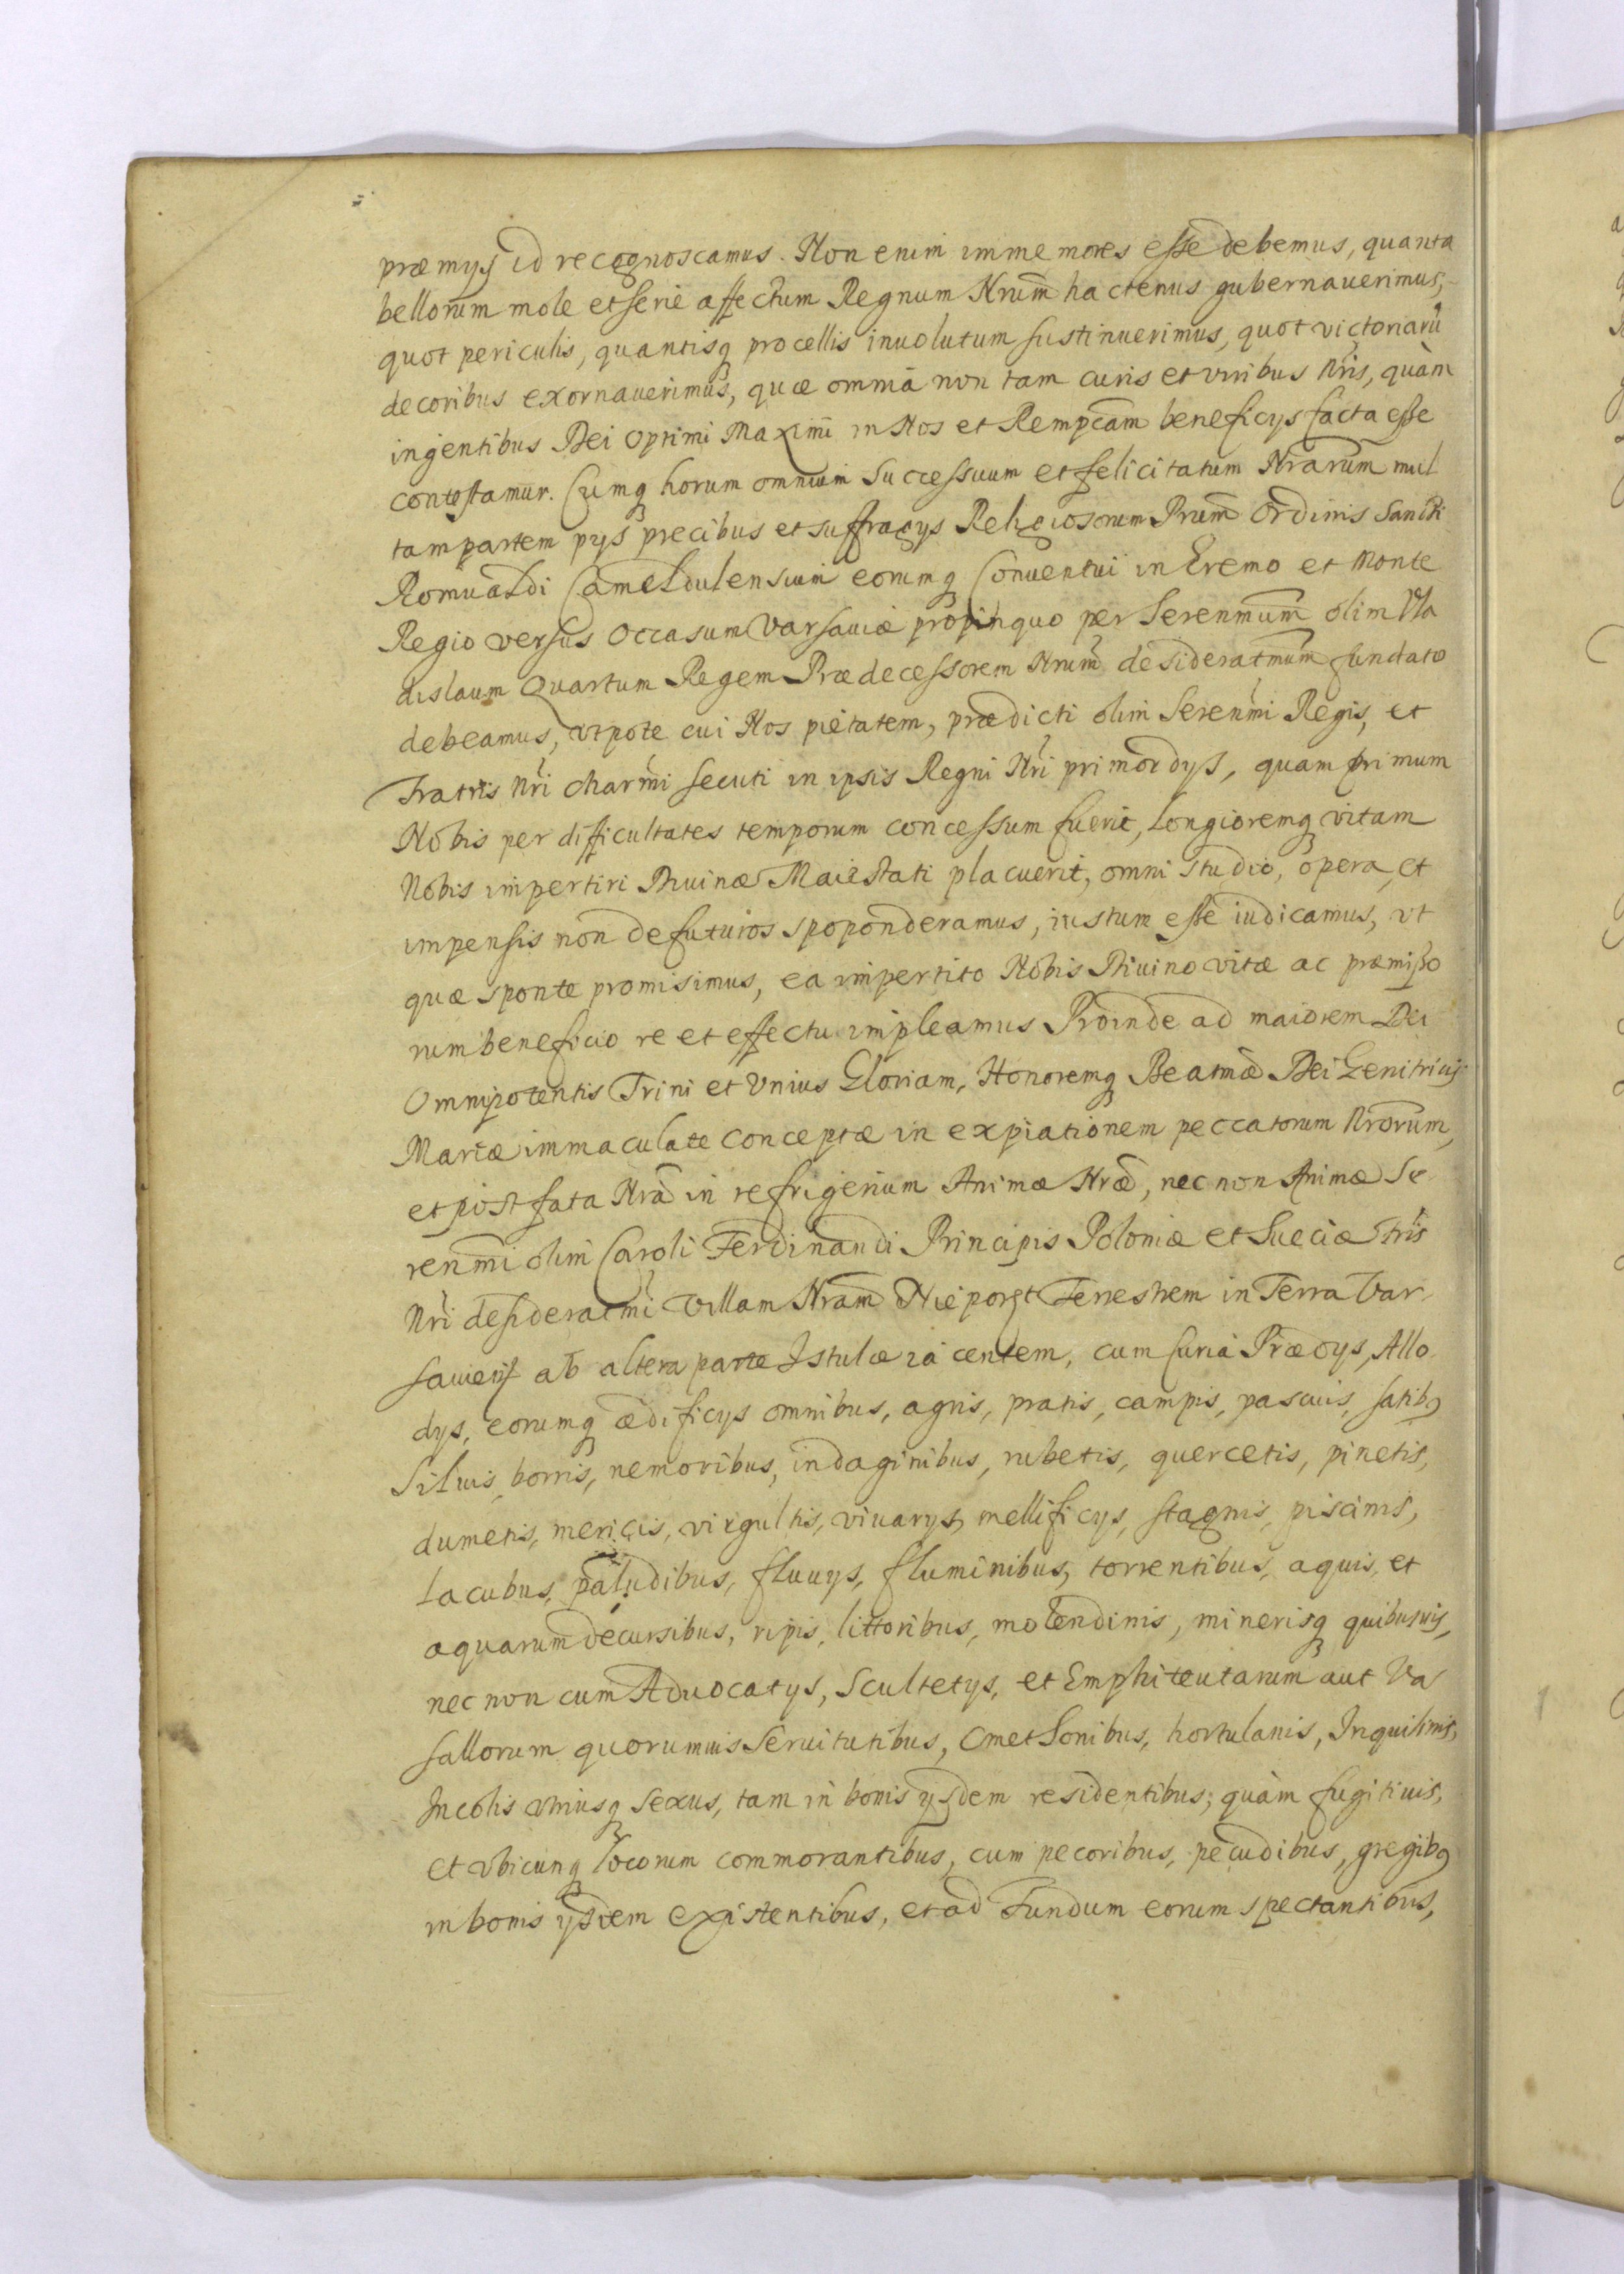 præmijs id recognoscamus. Non enim immemores esse debemus, quanta
bellorum mole et serie affectum Regnum Nrum hactenus gubernauerimus,
quot periculis, quantisq procellis inuolutum sustinuerimus, quot victoriarũ
decoribus exornauerimus, quæ omnia non tam curis et viribus Nris, quàm
ingentibus Dei Optimi Maximi in Nos et Rempcam beneficijs facta esse
contestamur. Cumq horum omnium Successuum et felicitatum Nrarum mul
tam partem pijs precibus et suffragijs Religiosorum Prum Ordinis Sancti
Romualdi Cameldulensium eorumq Conuentui in Eremo et Monte
Regio versus Occasum Varsauiæ propinquo per Serenmum olim Vla
dislaum Quartum Regem Prædecessorem Nrum desideratmum fundato
debeamus, vtpote cui Nos pietatem, prædicti olim Serenmi Regis, et
Fratris Nri charmi secuti in ipsis Regni Nri primordijs, quam primum
Nobis per difficultates temporum concessum fuerit, Longioremq vitam
Nobis impertiri Diuinæ Maiestati placuerit, omni studio, opera, et
impensis non defuturos spoponderamus, iustum esse iudicamus, vt
quæ sponte promisimus, ea impertito Nobis Diuino vitæ ac præmisso
rum beneficio re et effectu impleamus Proinde ad maiorem Dei
Omnipotentis Trini et Vnius Gloriam, Honoremq Beatmæ Dei Genitricis
Mariæ immaculate conceptæ in expiationem peccatorum Nrorum,
et post fata Nra in refrigerium Animæ Nræ, nec non Animæ Se
renmi olim Caroli Ferdinandi Principis Poloniæ et Sueciæ Fris
Nri desideratmi Villam Nram Nieporęt Terrestrem in Terra Var
sauiensi ab altera parte Istulæ iacentem, cum Curia Prædijs, Allo
dijs, eorumq ædificijs omnibus, agris, pratis, campis, pascuis, satibq
Siluis, borris, nemoribus, indaginibus, rubetis, quercetis, pinetis,
dumetis, mericis, virgultis, viuarijs, mellificijs, stagnis, piscinis,
Lacubus, paludibus, fluuijs, fluminibus, torrentibus, aquis, et
aquarum decursibus, ripis, littoribus, molendinis, minerisq quibusuis,
nec non cum Aduocatijs, Scultetijs, et Emphiteutarum aut Va
sallorum quorumuis Seruitutibus, Cmethonibus, hortulanis, Inquilinis,
Incolis vtriusq sexus, tam in bonis ijsdem residentibus, quàm fugitiuis,
et vbicunq locorum commorantibus, cum pecoribus, pecudibus, gregibq
in bonis ijsdem existentibus, et ad Fundum eorum spectantibus,